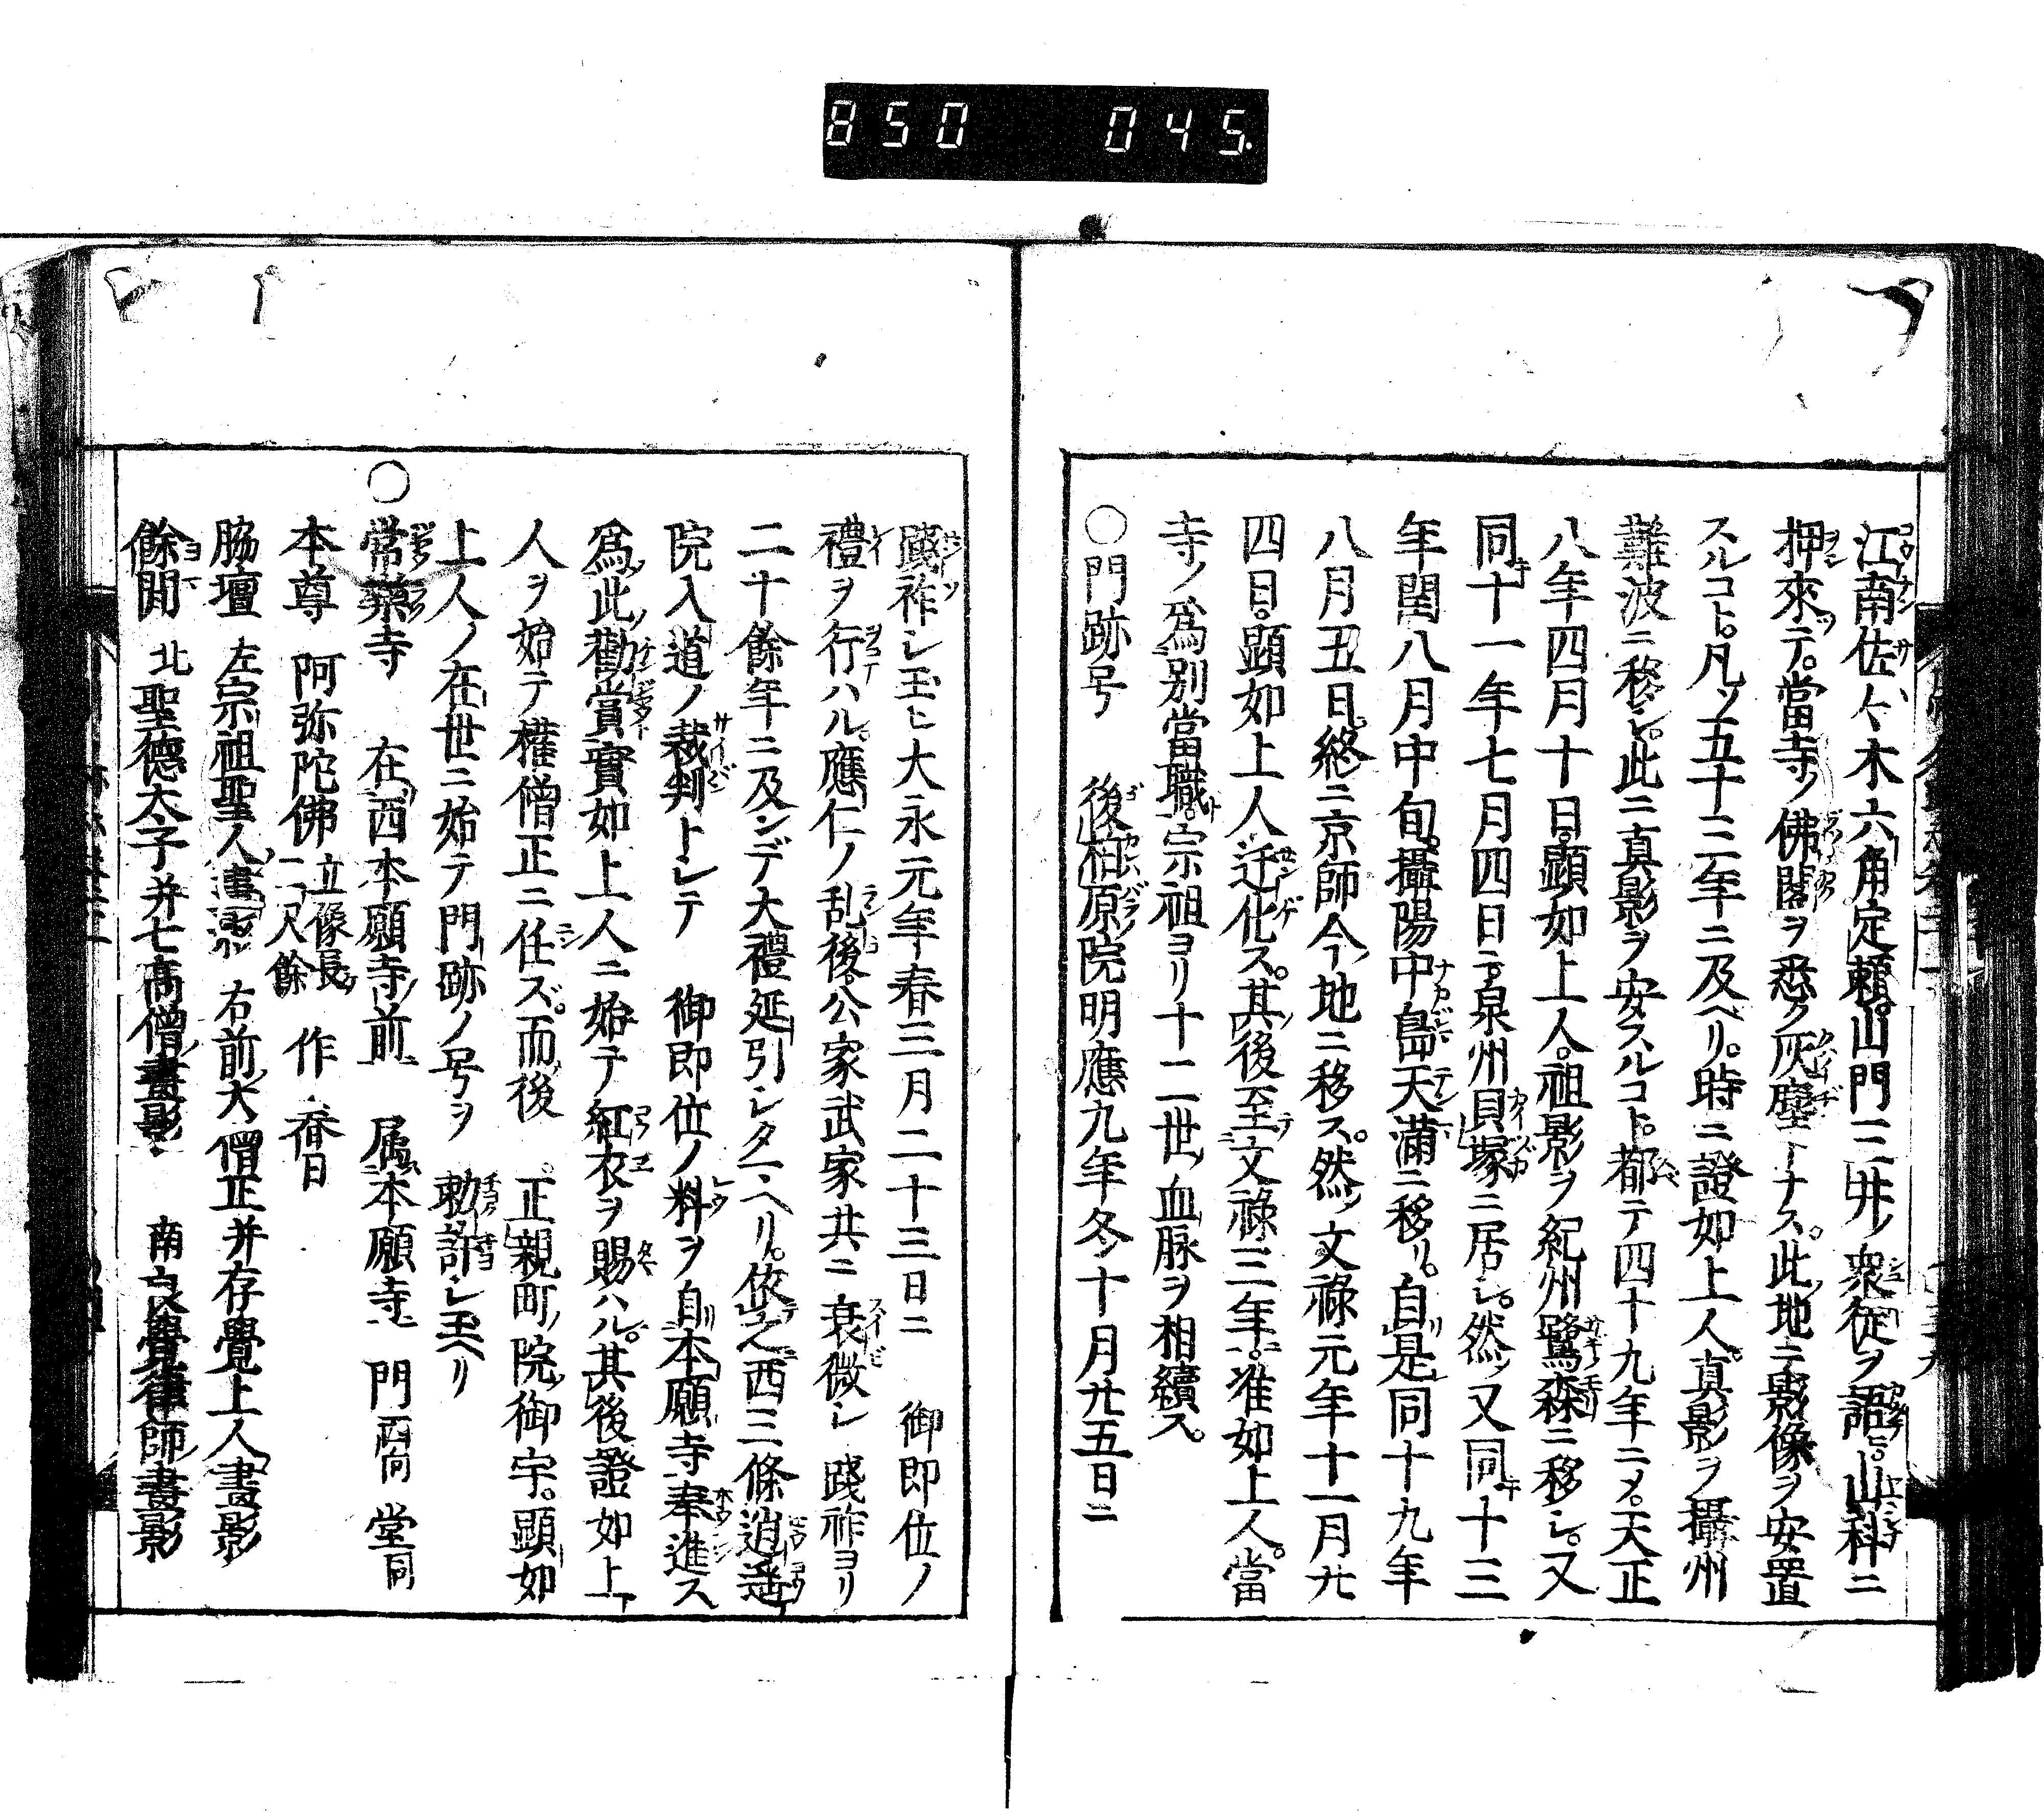 850 045
江南佐々木六角定頼。山門三井ノ衆徒ヲ語ヒ。山科ニ
押來テ。當寺ノ佛閣ヲ悉ク灰塵トナス。此ノ地ニ影像ヲ安置
スルコト。凡ソ五十三年ニ及ベリ。時ニ證如上人。真影ヲ攝州
難波ニ移シ。此ニ真影ヲ安スルコト。都テ四十九年ニメ。天正
八年四月十日。顕如上人。祖影ヲ紀州鷺森ニ移シ。又
同十一年七月四日ニ泉州貝塚ニ居シ。然ノ又同十三
年閏八月中旬。攝陽中島天満ニ移リ。自是同十九年
八月五日。終ニ京師今ノ地ニ移ス。然ノ文祿元年十一月廿
四日。顕如上人迁化ス。其後至文祿三年。准如上人。當
寺ノ為別當職。宗祖ヨリ十二世ノ血脉ヲ相續ス。
○門跡号 後柏原院明應九年冬十月廿五日ニ
踐祚シ玉ヒ大永元年春三月二十三日ニ 御即位ノ
禮ヲ行ハル。應仁ノ乱後。公家武家共ニ衰微シ踐祚ヨリ
二十餘年ニ及ンデ大禮延引シタマヘリ。依之西三條逍遥
院入道ノ裁判トシテ 御即位ノ料ヲ自本願寺奉進ス
為此ノ勸賞實如上人ニ始テ紅衣ヲ賜ハル。其後證如上
人ヲ始テ權僧正ニ任ズ。而後 正親町ノ院ノ御宇。顕如
上人ノ在世ニ始テ門跡ノ号ヲ 勅許シ玉ヘリ
○常樂寺 在西本願寺ノ前 属本願寺 門西向 堂同
本尊 阿弥陀佛 立像長ケ二尺餘 作 春日
脇壇 左宗祖聖人畫影 右前大僧正并存覺上人畫影
餘間 北聖德太子并七髙僧畫影 南良覺律師畫影